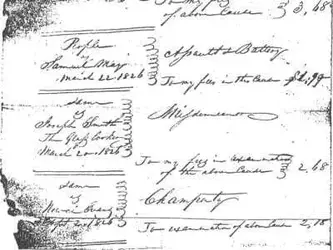 To my fees in
of above Cause } 3,68
People
vs
Samuel May
March 22 1826
Assault & Battery
To my fees in the Cause $1,99
same
vs
Joseph Smith
The Glass Looker
March 20 1826
Misdemeanor
To my fees in examination
of the above cause } 2,68
same
vs
Champerty
To examination of above Cause 2,18